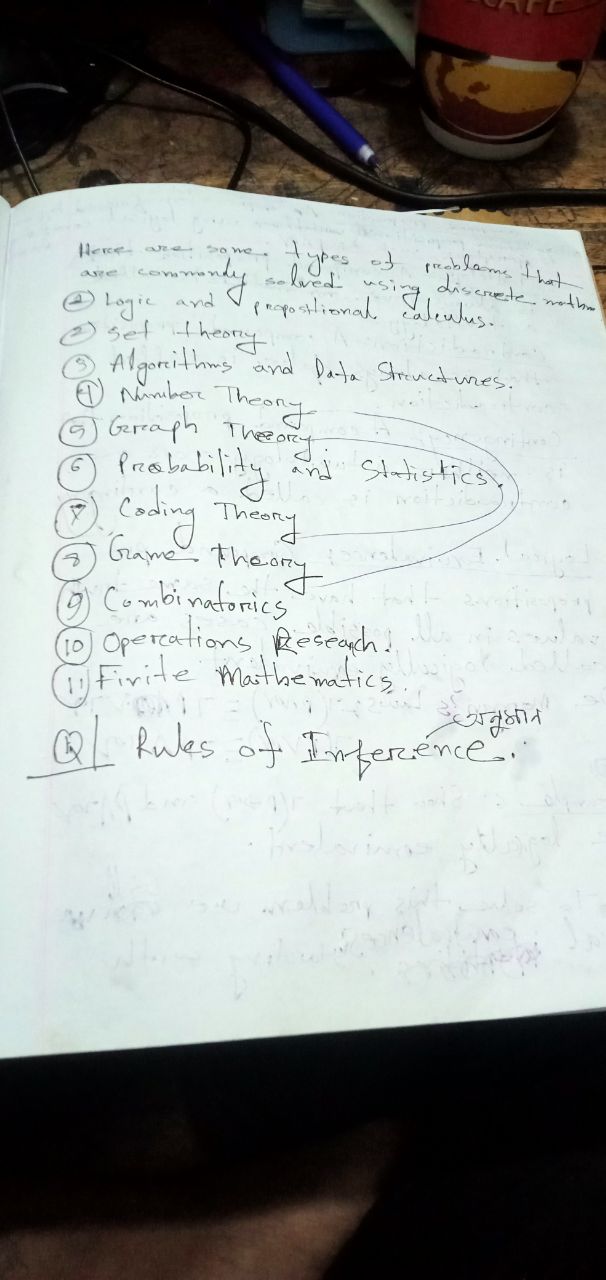 CAFE
Here are some types of problems that
are commonly solved using discrete mathm
① Logic and propostional calculus.
② set theory
③ Algorithms and Data Structures.
④ Number Theory
⑤ Graph Theory
⑥ Probability and Statistics.
⑦ Coding Theory
⑧ Game Theory
⑨ Combinatorics
⑩ Operations Research.
⑪ Finite Mathematics
অনুমান
Q| Rules of Inference.